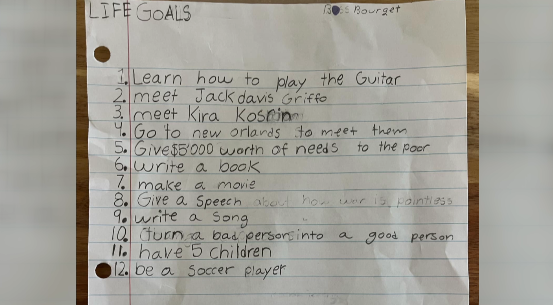 LIFE GOALS
Bourget
1. Learn how to play the Guitar
2. meet Jack davis Griffo
3. meet Kira Kosarin
4. Go to new orlands to meet them
5. Give $5000 worth of needs to the poor
6. write a book
7. make a movie
8. Give a Speech about how war is pointless
9. write a Song
10. turn a bad person into a good person
11. have 5 children
12. be a soccer player